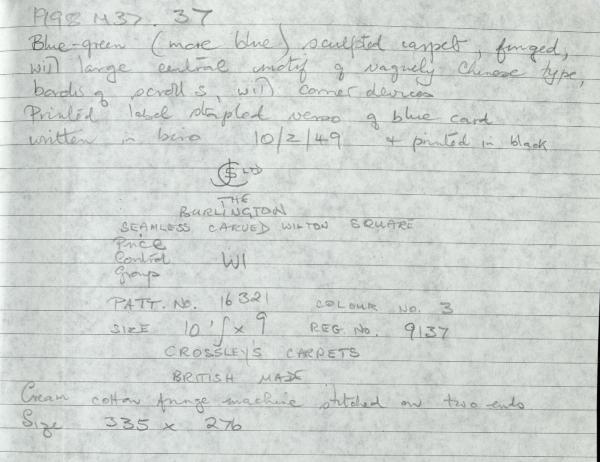 1998 H37. 37
Blue-green (more blue) sculpted carpet, fringed,
with large central motif of vaguely Chinese type,
borders of scrolls, with corner devices
Printed label stapled verso of blue card
written in biro 10/2/49 + printed in black
LTD
THE
BURLINGTON
SEAMLESS CARVED WILTON SQUARE
Price
Control W1
Group
PATT. NO. 16321 COLOUR NO. 3
SIZE 10' x 9 REG. NO. 9137
CROSSLEY'S CARPETS
BRITISH MADE
Cream cotton fringe machine stitched on two ends
Size 335 x 276